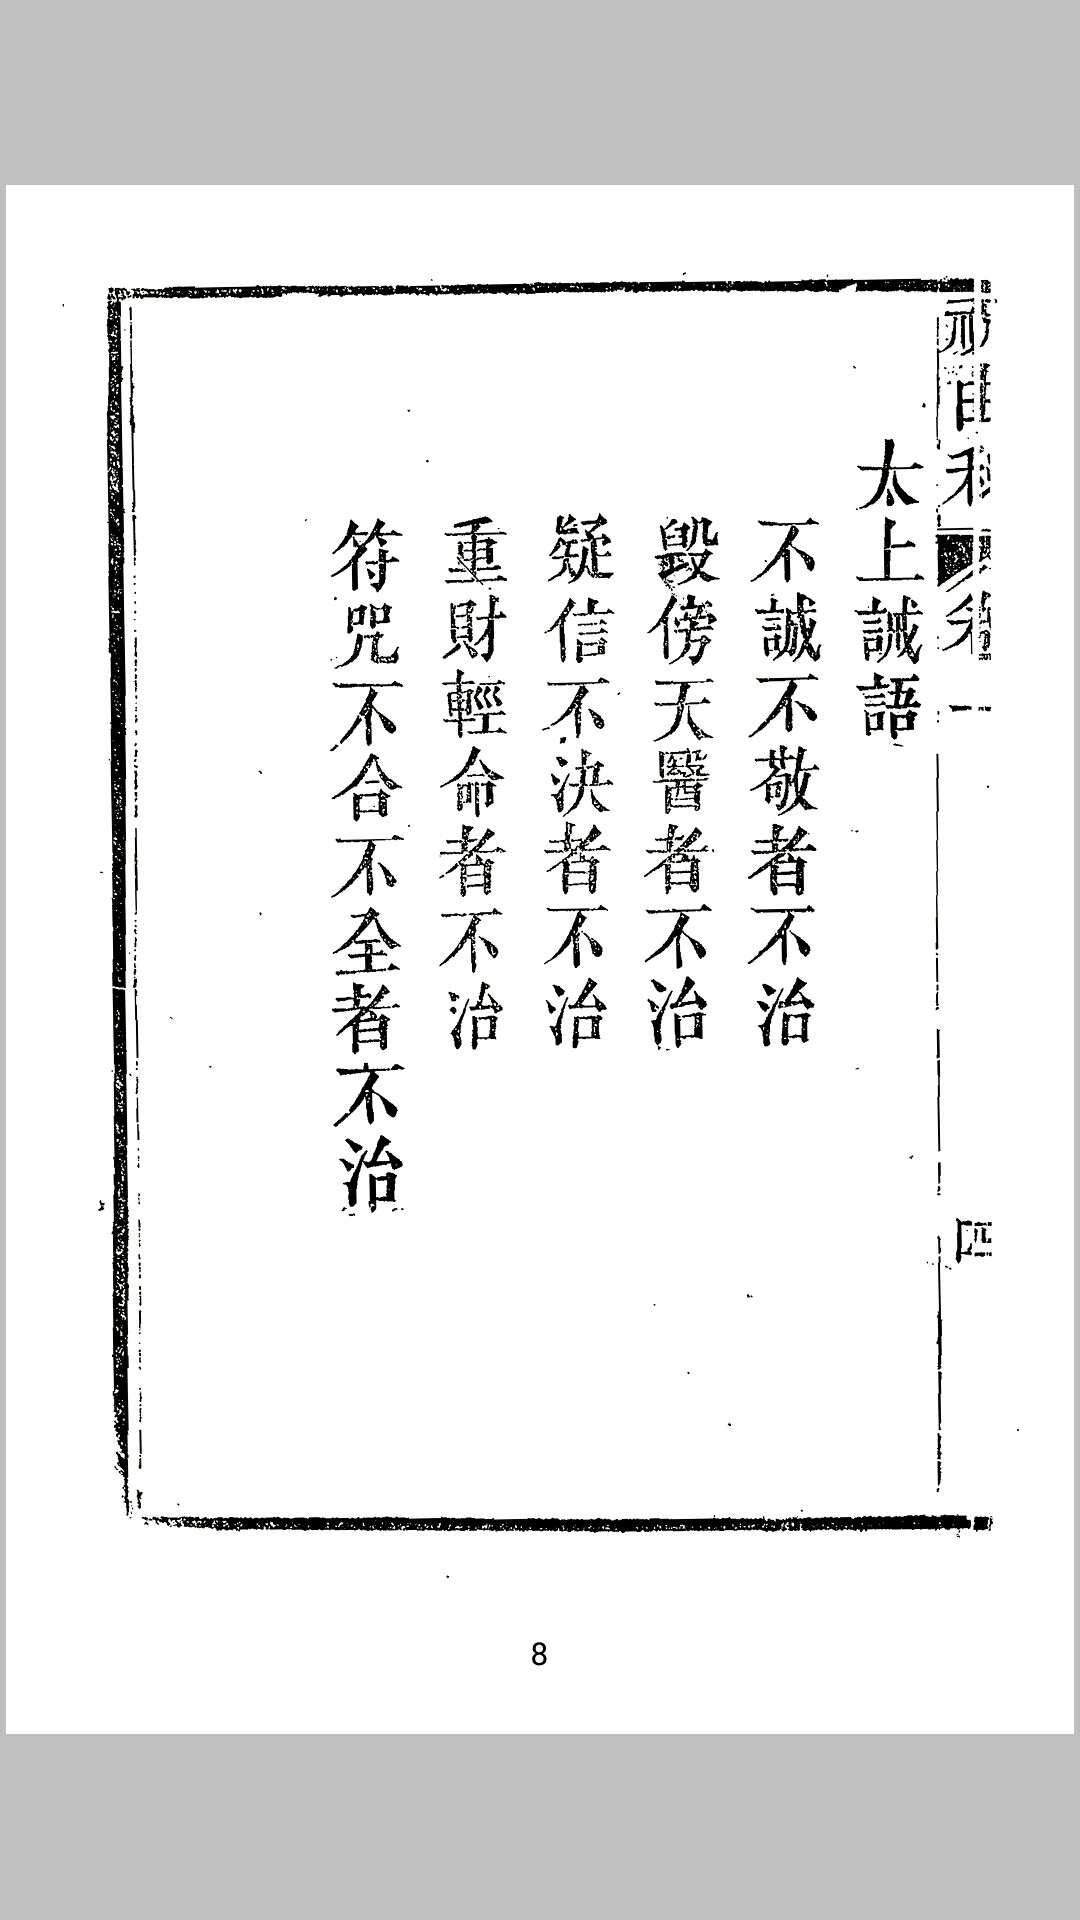 科卷一
四
太上誡語
不誠不敬者不治
毀傍天醫者不治
疑信不決者不治
重財輕命者不治
符咒不合不全者不治
8